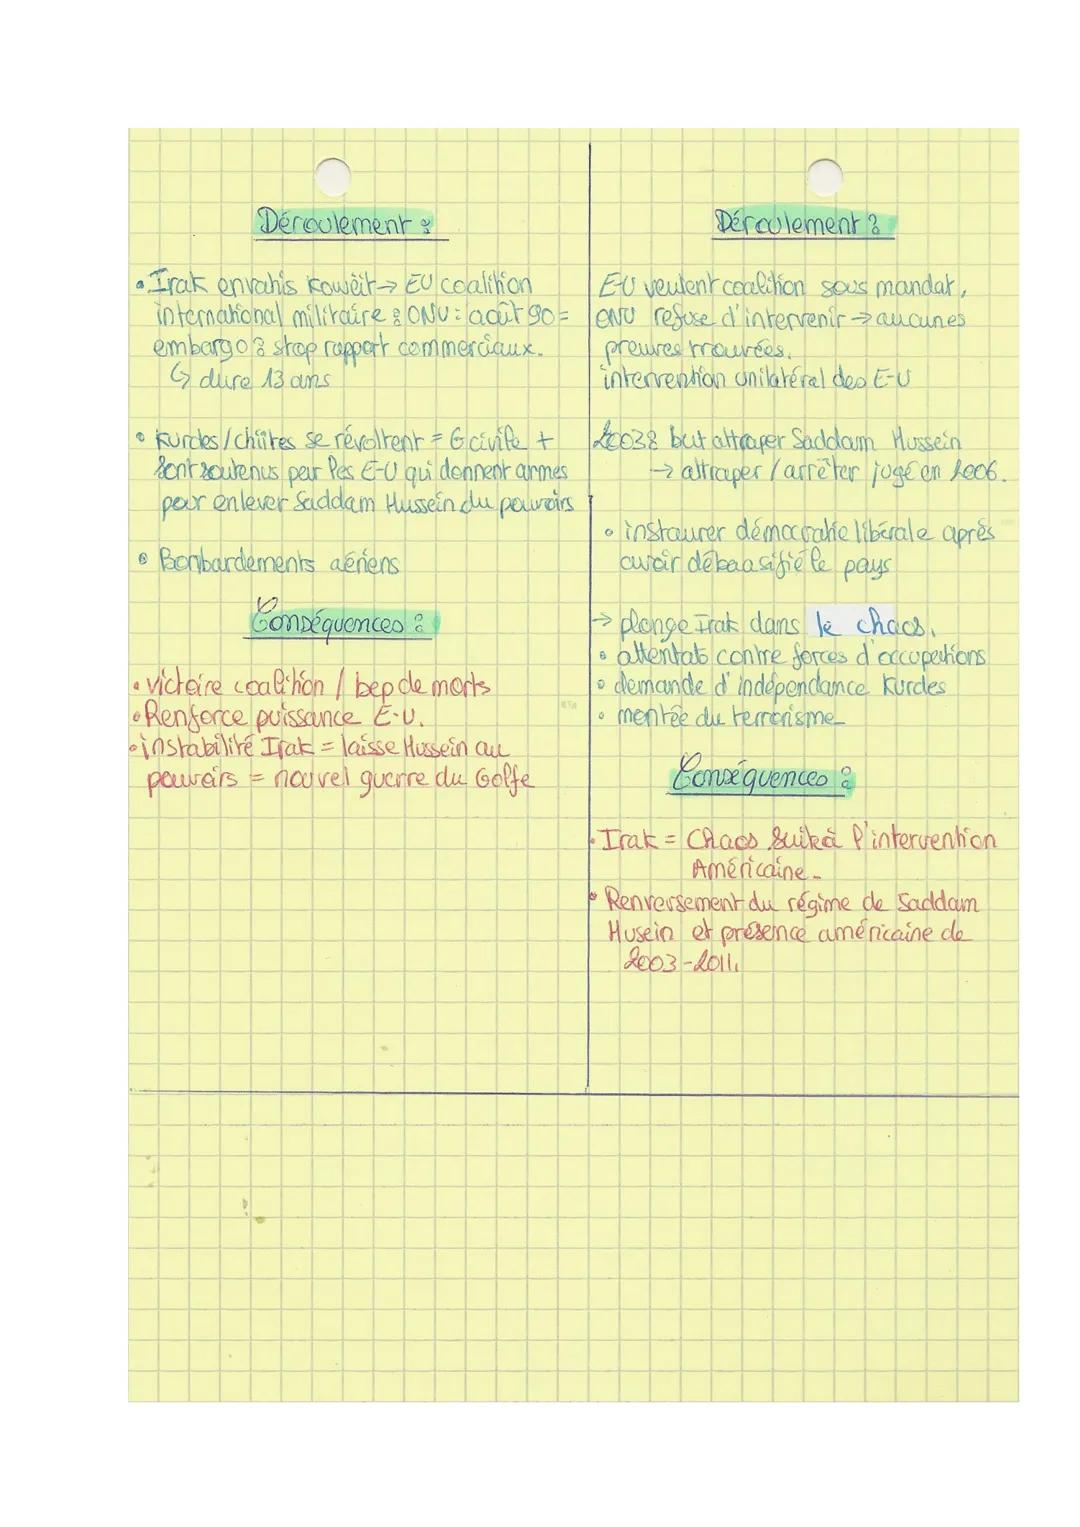 Déroulement :
• Irak envahis Koweït → EU coalition
international militaire : ONU : août 90 =
embargo : stop rapport commerciaux.
↳ dure 13 ans
• Kurdes / chiites se révoltent = G civile +
sont soutenus par les E-U qui donnent armes
pour enlever Saddam Hussein du pouvoirs
• Bombardements aériens
Conséquences :
• victoire coalition / bcp de morts
• Renforce puissance E-U.
• instabilité Irak = laisse Hussein au
pouvoirs = nouvel guerre du Golfe
Déroulement :
E-U veulent coalition sous mandat,
ONU refuse d'intervenir → aucunes
preuves trouvées.
intervention unilatéral des E-U
2003 : but attraper Saddam Hussein
→ attraper / arrêter jugé en 2006.
• instaurer démocratie libérale après
avoir débaasifié le pays
→ plonge Irak dans le chaos.
• attentats contre forces d'occupations
• demande d'indépendance Kurdes
• montée du terrorisme
Conséquences :
• Irak = Chaos suite à l'intervention
Américaine.
• Renversement du régime de Saddam
Husein et présence américaine de
2003-2011.